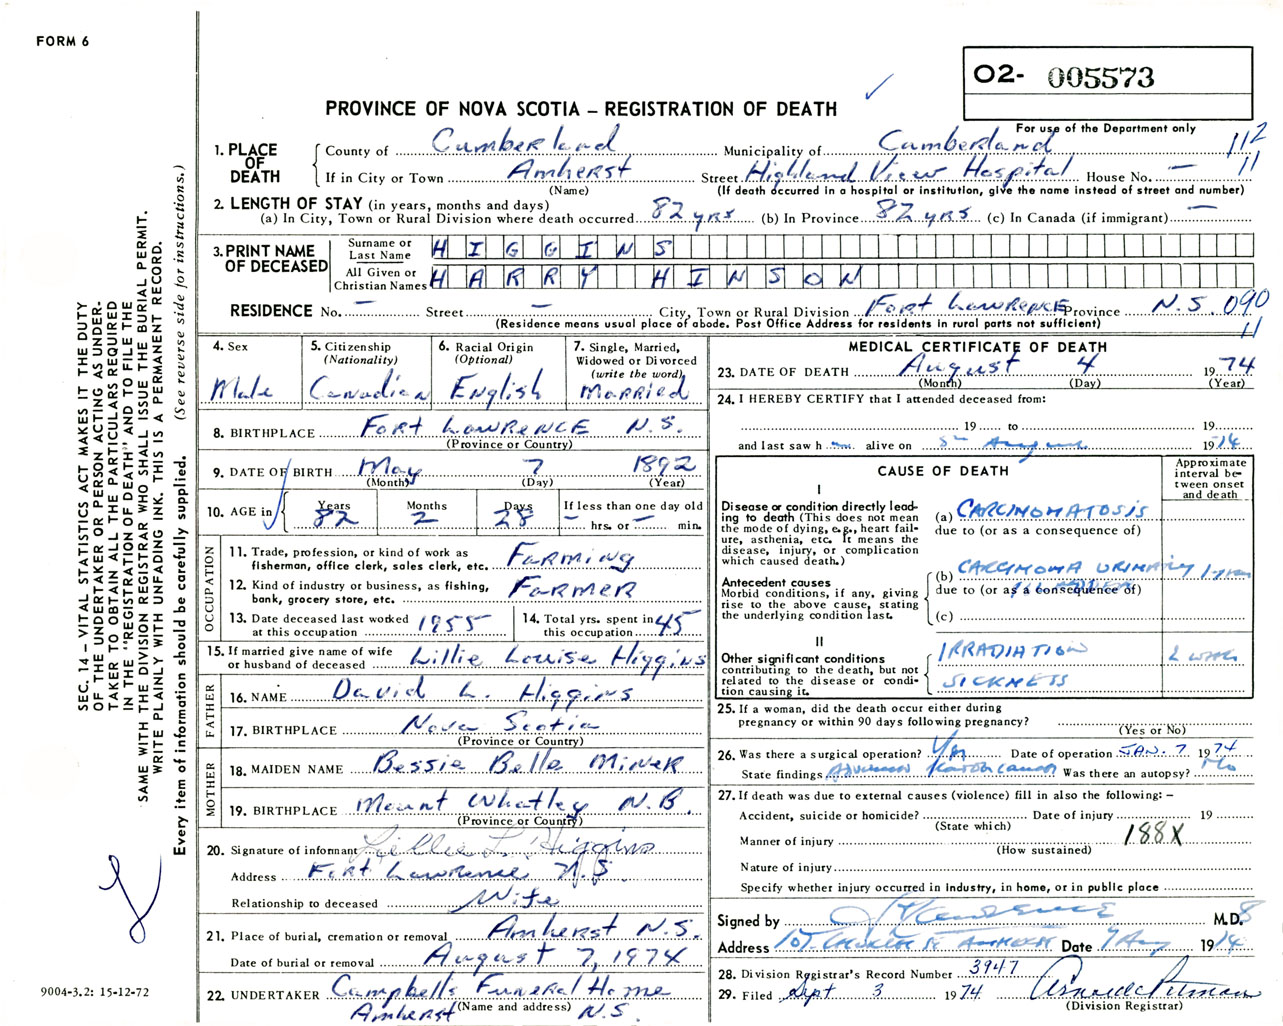 FORM 6
O2- 005573
PROVINCE OF NOVA SCOTIA – REGISTRATION OF DEATH
For use of the Department only
1. PLACE OF DEATH
County of Cumberland Municipality of Cumberland 112
If in City or Town Amherst Street Highland View Hospital House No. — 11
(Name) (If death occurred in a hospital or institution, give the name instead of street and number)
2. LENGTH OF STAY (in years, months and days)
(a) In City, Town or Rural Division where death occurred 82 yrs (b) In Province 82 yrs (c) In Canada (if immigrant) —
3. PRINT NAME OF DECEASED
Surname or Last Name HIGGINS
All Given or Christian Names HARRY HINSON
RESIDENCE No. — Street — City, Town or Rural Division Fort Lawrence Province N.S. 090
(Residence means usual place of abode. Post Office Address for residents in rural parts not sufficient) 11
4. Sex
Male
5. Citizenship
(Nationality)
Canadian
6. Racial Origin
(Optional)
English
7. Single, Married,
Widowed or Divorced
(write the word)
Married
8. BIRTHPLACE Fort Lawrence N.S.
(Province or Country)
9. DATE OF BIRTH May 7 1892
(Month) (Day) (Year)
10. AGE in
Years Months Days If less than one day old
82 2 28 — hrs. or — min.
OCCUPATION
11. Trade, profession, or kind of work as
fisherman, office clerk, sales clerk, etc. Farming
12. Kind of industry or business, as fishing,
bank, grocery store, etc. Farmer
13. Date deceased last worked
at this occupation 1955
14. Total yrs. spent in
this occupation 45
15. If married give name of wife
or husband of deceased Lillie Louise Higgins
FATHER
16. NAME David L. Higgins
17. BIRTHPLACE Nova Scotia
(Province or Country)
MOTHER
18. MAIDEN NAME Bessie Belle Miner
19. BIRTHPLACE Mount Whatley N.B.
(Province or Country)
20. Signature of informant Lillie L Higgins
Address Fort Lawrence N.S.
Relationship to deceased Wife
21. Place of burial, cremation or removal Amherst N.S.
Date of burial or removal August 7, 1974
22. UNDERTAKER Campbells Funeral Home
Amherst (Name and address) N.S.
MEDICAL CERTIFICATE OF DEATH
23. DATE OF DEATH August 4 1974
(Month) (Day) (Year)
24. I HEREBY CERTIFY that I attended deceased from:
19 to 19
and last saw h alive on August 1974
CAUSE OF DEATH
Approximate interval between onset and death
I
Disease or condition directly leading to death (This does not mean the mode of dying, e.g., heart failure, asthenia, etc. It means the disease, injury, or complication which caused death.)
(a) CARCINOMATOSIS
due to (or as a consequence of)
Antecedent causes
Morbid conditions, if any, giving rise to the above cause, stating the underlying condition last.
(b) CARCINOMA URINARY
due to (or as a consequence of)
(c)
II
Other significant conditions
contributing to the death, but not related to the disease or condition causing it.
IRRADIATION
SICKNESS
25. If a woman, did the death occur either during
pregnancy or within 90 days following pregnancy?
(Yes or No)
26. Was there a surgical operation? Yes Date of operation JAN. 7 1974
State findings Was there an autopsy? No
27. If death was due to external causes (violence) fill in also the following: –
Accident, suicide or homicide? Date of injury 19
(State which)
Manner of injury 188X
(How sustained)
Nature of injury
Specify whether injury occurred in industry, in home, or in public place
Signed by M.D. 8
Address Date 7 Aug 1974
28. Division Registrar's Record Number 3947
29. Filed Sept 3 1974
(Division Registrar)
SEC. 14 – VITAL STATISTICS ACT MAKES IT THE DUTY
OF THE UNDERTAKER OR PERSON ACTING AS UNDER-
TAKER TO OBTAIN ALL THE PARTICULARS REQUIRED
IN THE "REGISTRATION OF DEATH" AND TO FILE THE
SAME WITH THE DIVISION REGISTRAR WHO SHALL ISSUE THE BURIAL PERMIT.
WRITE PLAINLY WITH UNFADING INK. THIS IS A PERMANENT RECORD.
Every item of information should be carefully supplied. (See reverse side for instructions.)
9004-3.2: 15-12-72